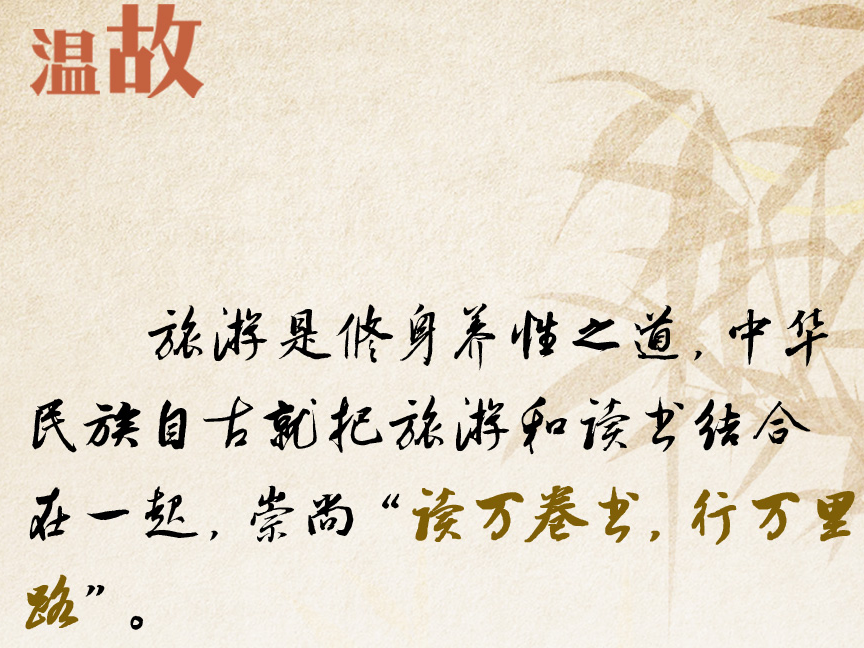 温故
旅游是修身养性之道，中华
民族自古就把旅游和读书结合
在一起，崇尚“读万卷书，行万里
路”。